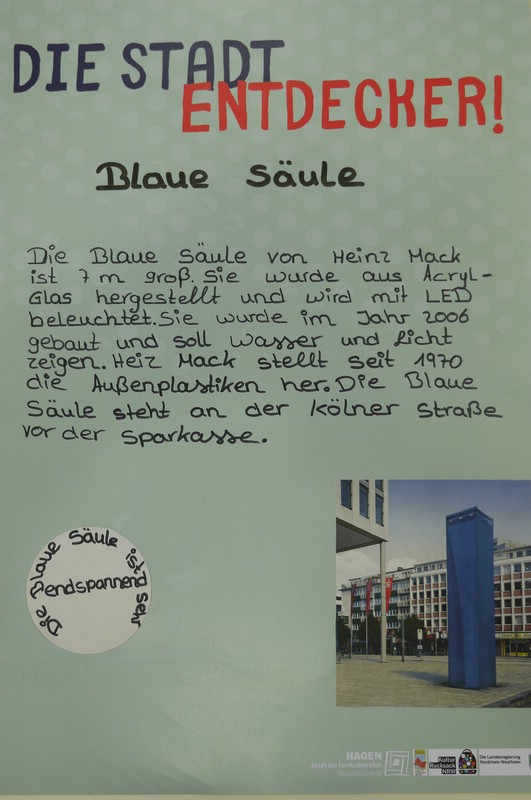 DIE STADT
ENTDECKER!
Blaue Säule
Die Blaue Säule von Heinz Mack
ist 7 m groß. Sie wurde aus Acryl-
Glas hergestellt und wird mit LED
beleuchtet. Sie wurde im Jahr 2006
gebaut und soll Wasser und Licht
zeigen. Heiz Mack stellt seit 1970
die Außenplastiken her. Die Blaue
Säule steht an der Kölner Straße
vor der Sparkasse.
Die Blaue Säule ist sehr
Pendspannend
HAGEN
Stadt der FernUniversität
Stadtbücherei
Kultur
Rucksack
NRW
Die Landesregierung
Nordrhein-Westfalen